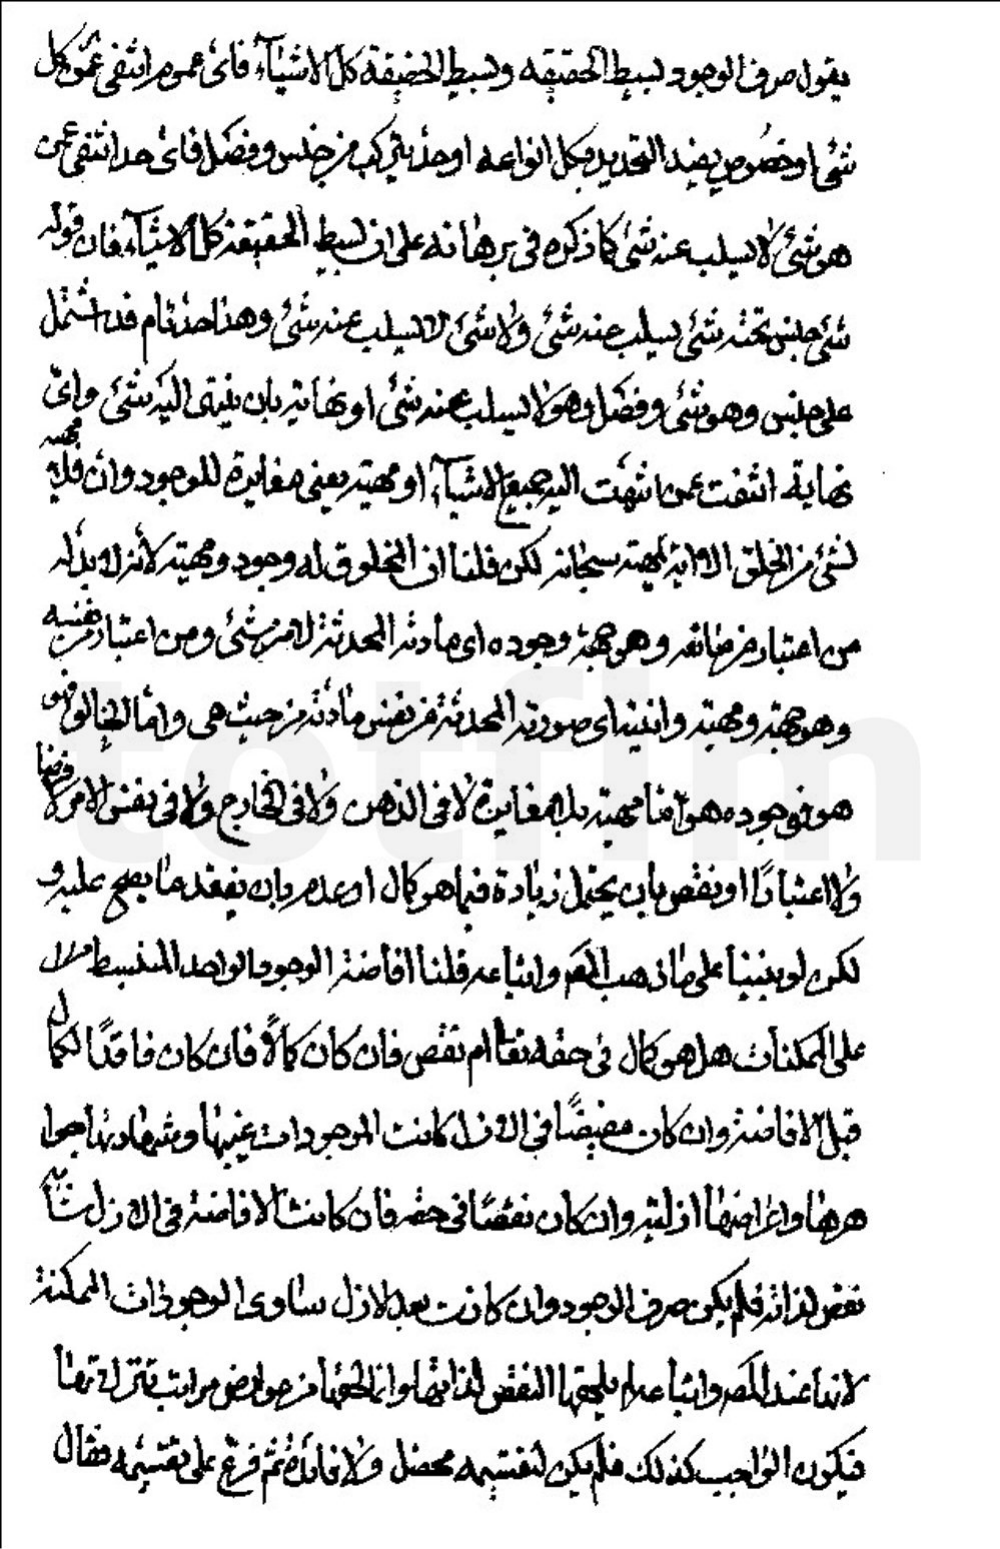 يقول صرف الوجود بسيط الحقيقة وبسيط الحقيقة كل الاشيآء فائ عموم انتفى عمّن كل
شئ او خصوص يفيد التحديد بكل انواعه او حدّ يتركب من جنس وفصل فائ حد انتفى عمن
هو شئ لا يسلب عنه شئ كما ذكره فى برهانه على ان بسيط الحقيقة كل الاشيآء فان قوله
شئ جنس تحته شئ يسلب عنه شئ ولا شئ لا يسلب عنه شئ وهذا حدّ تام قد اشتمل
على جنس وهو شئ وفصل وهو لا يسلب عنه شئ او نهاية بان ينتهى اليه شئ واىّ
نهاية انتفت عمن انتهت اليه جميع الاشيآء او مهيته يعنى مغايرة للوجود وان
لشئ من الخلق الا انه سبحانه لكن قلنا ان المخلوق له وجود ومهية لانه لا بد له
من اعتبار من صانعه وهو جهة وجوده اى مادته المحدثة لا من شئ ومن اعتبار من نفسه
وهو جهة ومهيته وانيته اى صورته المحدثة من نفس مادته من حيث هى وامّا الخالق فهو
هو فوجوده هو مهيته بلا مغايرة لا فى الذهن ولا فى الخارج ولا فى نفس الامر لا فرضا
ولا اعتبارًا او نقص بان يحتمل زيادة فيما هو كمال او عدم بان يفقد ما يصح عليه و
لكن لو بنينا على ما ذهب المص واتباعه قلنا افاضة الوجود الواحد المنبسط مثلا
على الممكنات هل هو كمال فى حقه تعالى ام نقص فان كان كمالًا فان كان فاقدًا لكمال
قبل الافاضة وان كان مفيضًا فى الازل كانت الموجودات غيبها وشهادتها جوا
هرها واعراضها ازلية وان كان نقصًا فى حقه فان كانت الافاضة فى الازل
نقص لذاته فلم يكن صرف الوجود وان كانت بعد الازل ساوى الوجودات الممكنة
لانها عند المص واتباعه لم يلحقها النقص لذاتها وانما لحقها من عوارض مراتب تنزلاتها
فيكون الواجب كذلك فلم يكن لتقسيمه محصل ولا فائدة ثم فرّع على تقسيمه فقال
totfim